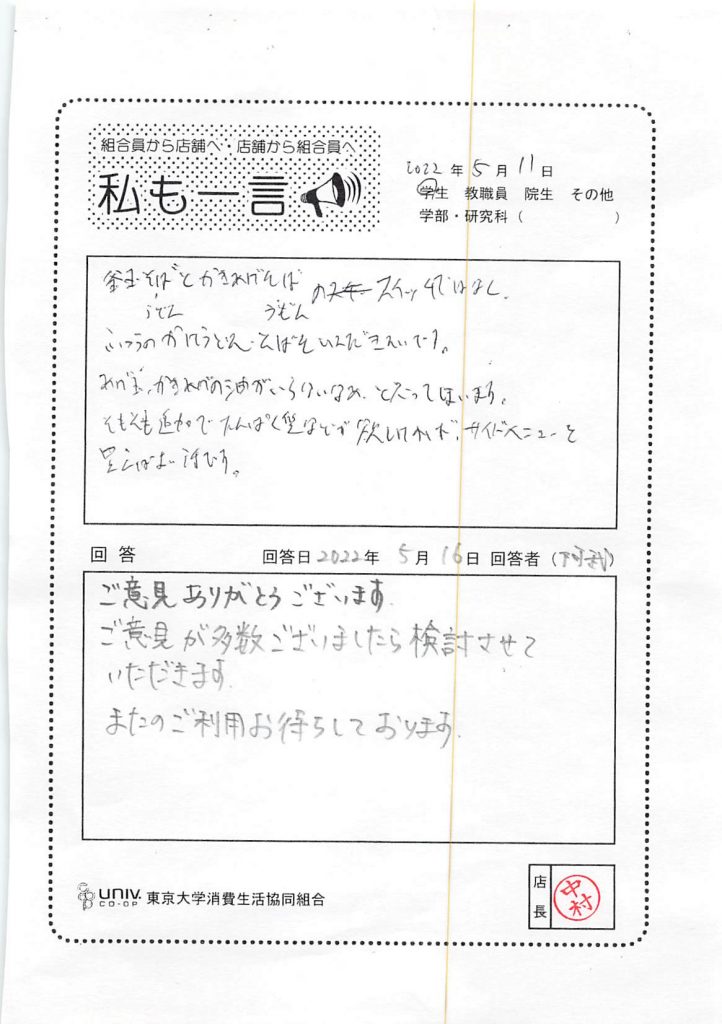 組合員から店舗へ・店舗から組合員へ
私も一言
2022年 5月 11日
学生 教職員 院生 その他
学部・研究科（ ）
釜玉そばとかきあげそば のスイッチではなく、
うどん うどん
ふつうのかけうどん・そばをいただきたいです。
あげ玉、かきあげの油がいらないなあ、と思ってしまいます。
そもそも追加でたんぱく質などが欲しければ、サイドメニューを
足せばよい話です。
回答 回答日 2022年 5月 16日 回答者（阿部）
ご意見ありがとうございます.
ご意見が多数ございましたら検討させて
いただきます.
またのご利用お待ちしております.
UNIV. CO-OP 東京大学消費生活協同組合
店長 中村